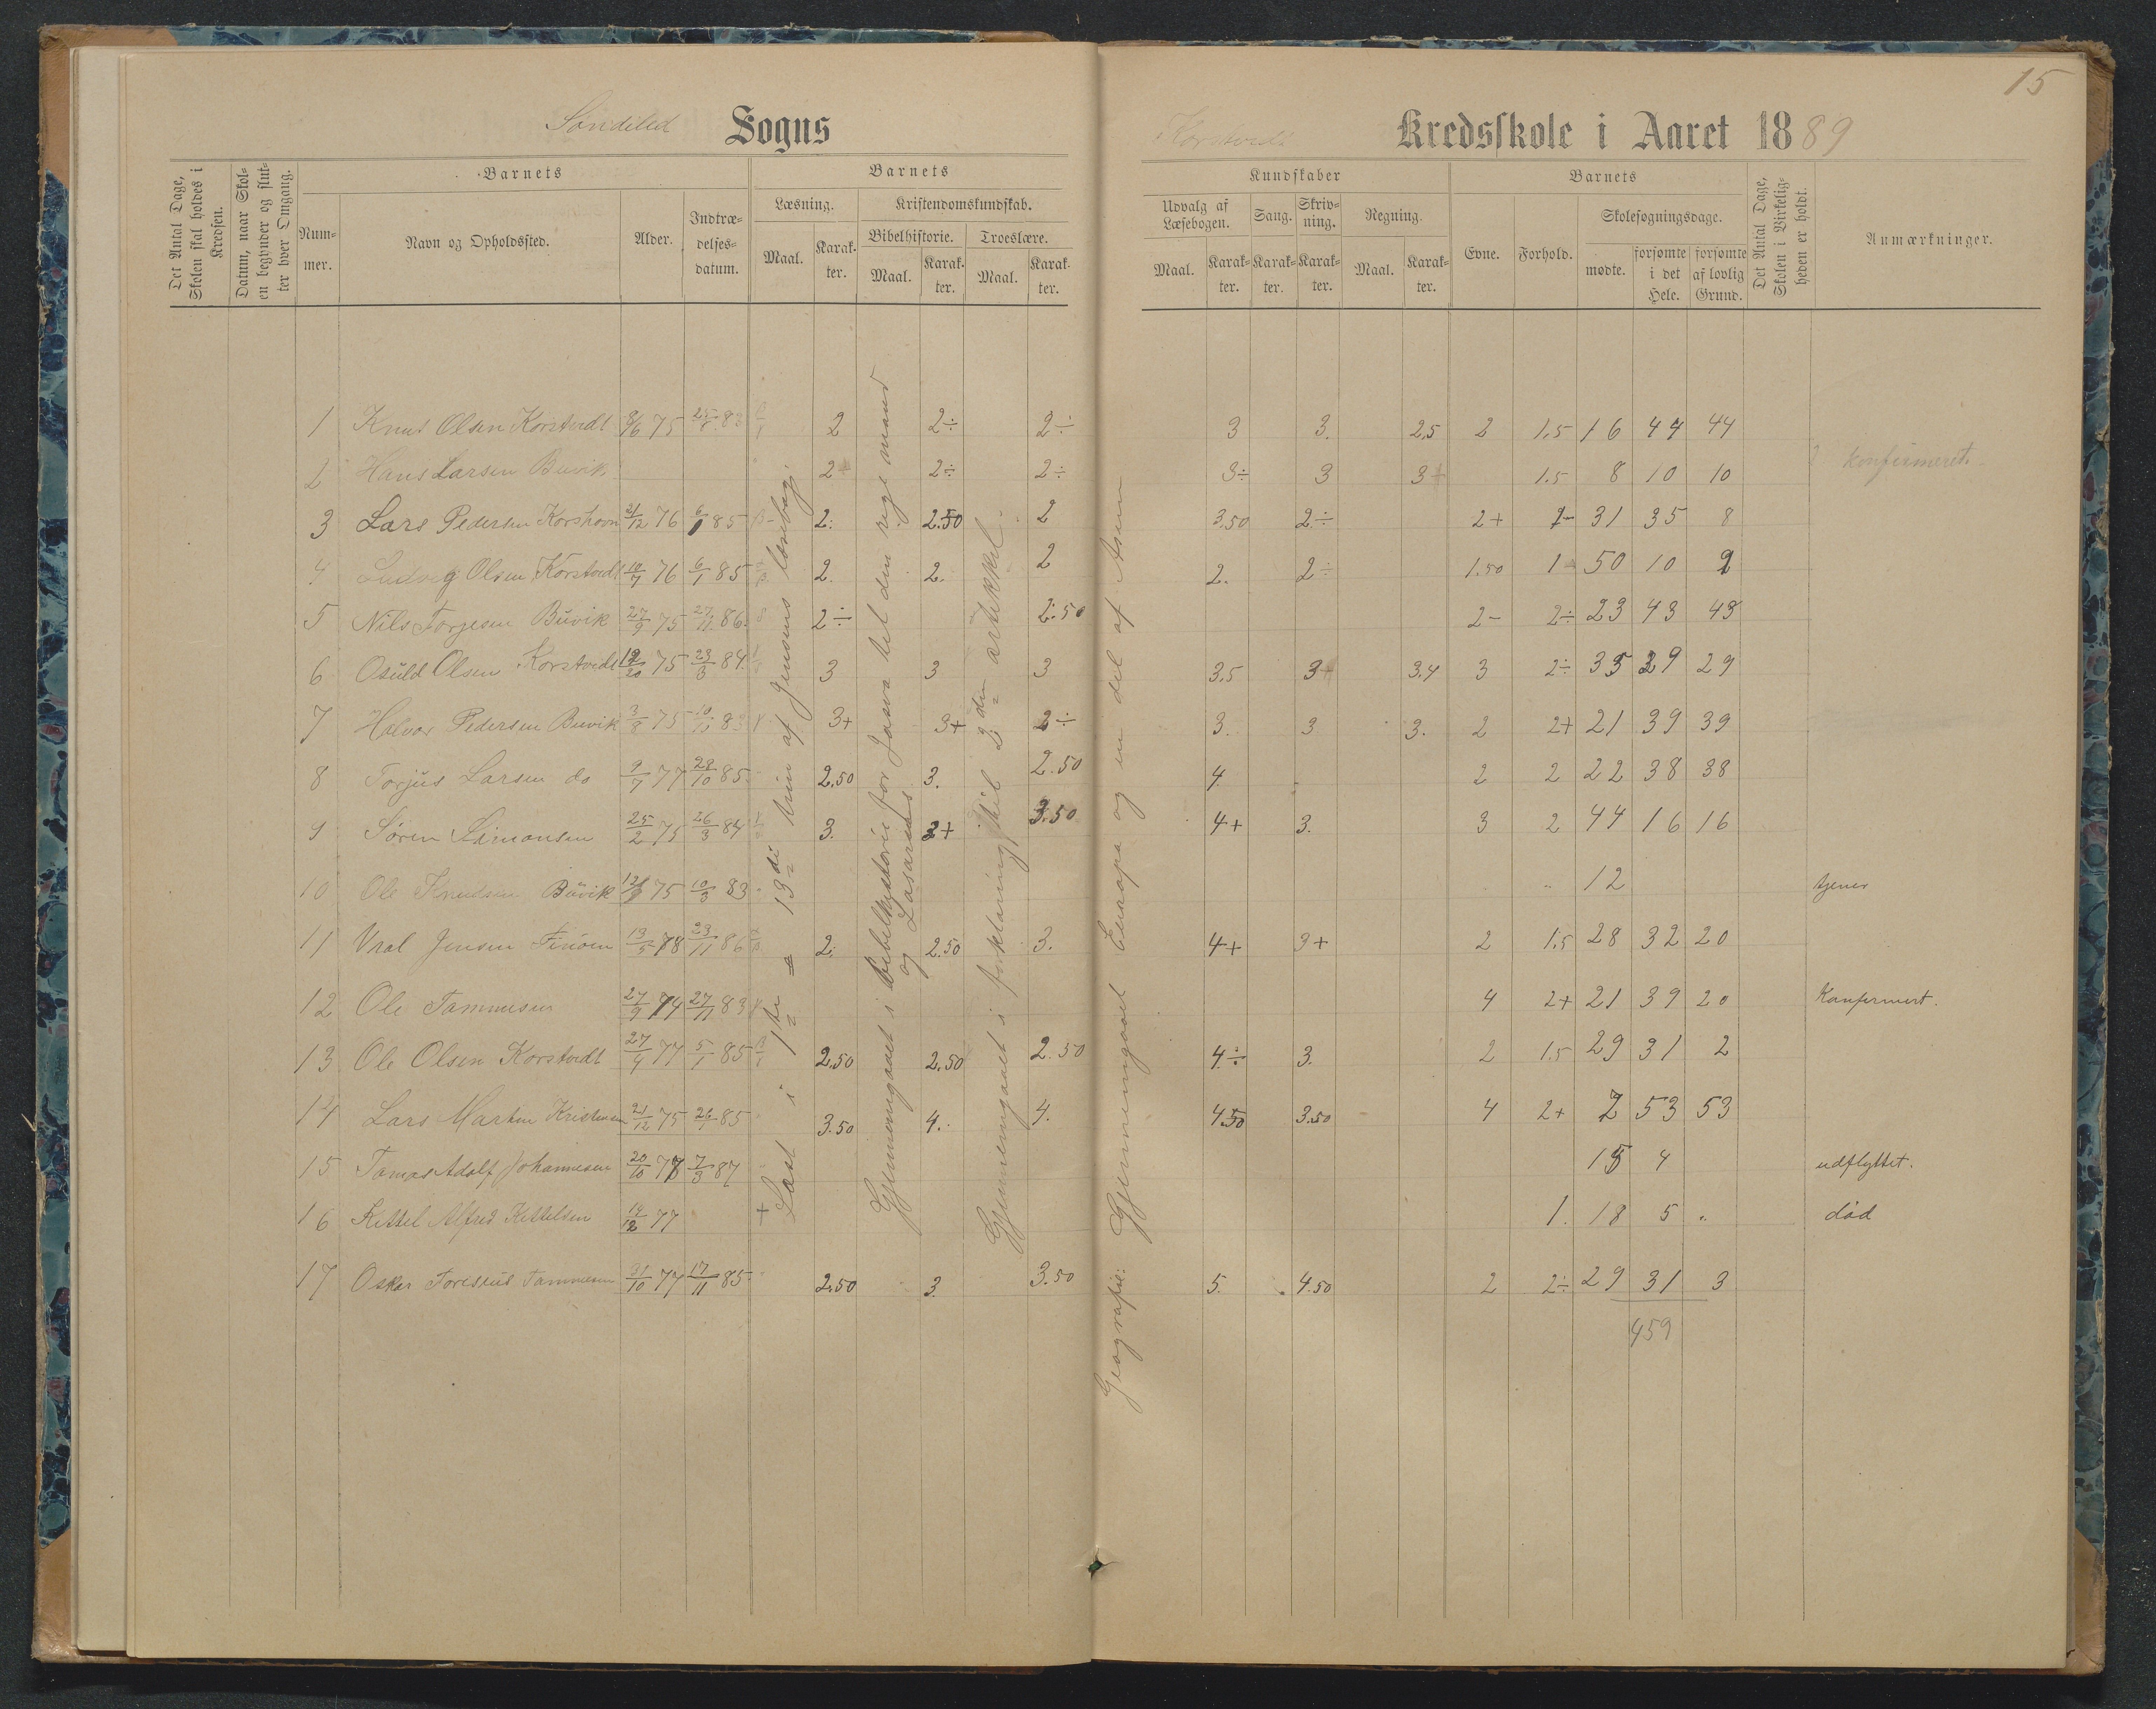 15
Søndiled Sogns
Korstvedt Kredsskole i Aaret 1889
Det Antal Dage, Skolen skal holdes i Kredsen.
Datum, naar Skolen begynder og slutter hver Omgang.
Barnets
Nummer.
Navn og Opholdssted.
Alder.
Indtrædelsesdatum.
Barnets
Læsning.
Maal. Karakter.
Kristendomskundskab.
Bibelhistorie. Troeslære.
Maal. Karakter. Maal. Karakter.
Kundskaber
Udvalg af Læsebogen. Sang. Skrivning. Regning.
Maal. Karakter. Karakter. Karakter. Maal. Karakter.
Barnets
Evne. Forhold. Skolesøgningsdage.
mødte. forsømte i det Hele. forsømte af lovlig Grund.
Det Antal Dage, Skolen i Virkeligheden er holdt.
Anmærkninger.
1 Knut Olsen Korstvedt 8/6 75 83 2 2÷ 2÷ 3 3. 2,5 2 1.5 16 44 44
2 Hans Larsen Buvik 2+ 2÷ 2÷ 3÷ 3 3+ 1.5 8 10 10 konfirmeret.
3 Lars Pedersen Korshavn 21/12 76 6/1 85 2. 2.50 2 3.50 2÷ 2+ 1- 31 35 8
4 Ludvig Olsen Korstvedt 10/7 76 6/1 85 2. 2. 2 2. 2÷ 1.50 1 50 10 2
5 Nils Torjesen Buvik 27/9 75 27/11 86. 2÷ 2.50 2- 2÷ 23 43 43
6 Osuld Olsen Korstvedt 12/20 75 23/3 84. 3 3 3 3.5 3+ 3.4 3 2÷ 35 29 29
7 Halvor Pedersen Buvik 3/8 75 83 3+ 3+ 2÷ 3. 3 3. 2 2+ 21 39 39
8 Torjus Larsen do 9/7 77 28/10 85. 2.50 3. 2.50 4. 2 2 22 38 38
9 Søren Simonsen 25/2 75 26/3 84 3. 3+ 3.50 4+ 3. 3 2 44 16 16
10 Ole Knudsen Buvik 75 10/3 83 12 tjener
11 Vral Jensen Finøen 13/5 78 23/11 86 2. 2.50 3. 4+ 3+ 2 1.5 28 32 20
12 Ole Tammesen 27/9 74 27/11 83 4 2+ 21 39 20 Konfermert.
13 Ole Olsen Korstvedt 27/4 77 5/1 85 2.50 2.50 2.50 4÷ 3. 2 1.5 29 31 2
14 Lars Martin Kristensen 21/12 75 26/1 85 3.50 4. 4. 4.50 3.50 4 2+ 7 53 53
15 Tomas Adolf Johannesen 20/10 77 7/3 87 15 4 udflyttet.
16 Kittel Alfred Kittelsen 19/12 77 + 1. 18 5 „ død
17 Oskar Toresius Tammesen 31/10 77 17/11 85. 2.50 3. 3.50 5. 4.50 2 2÷ 29 31 3
459
Læst i 1ste = 13di trin af Jensens læsebog.
Gjennemgaaet i bibelhistorie for Jasva tel den rige mand og Lasarus.
Gjennemgaaet i forklaring tel 2den artikkel.
Geografie: Gjennemgaaet Euorapa og en del af Asien